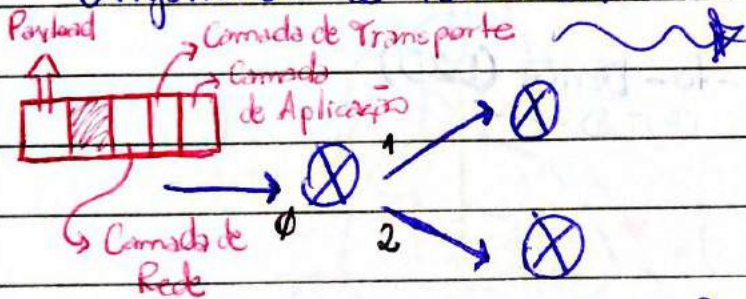 Payload
Camada de Transporte
Camada
de Aplicação
1
0
2
Camada de
Rede